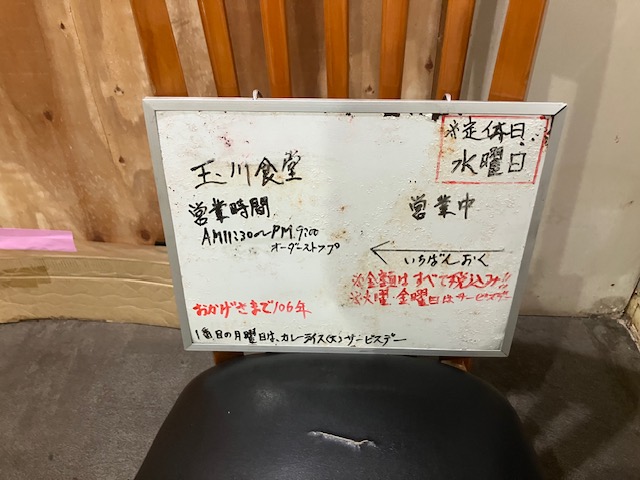 ※定休日
水曜日
玉川食堂
営業時間
AM11:30〜PM.9:00
オーダーストップ
営業中
←
いちばんおく
※金額はすべて税込み!!
※火曜・金曜日はサービスデー
おかげさまで106年
1番目の月曜日は、カレーライス(大)サービスデー